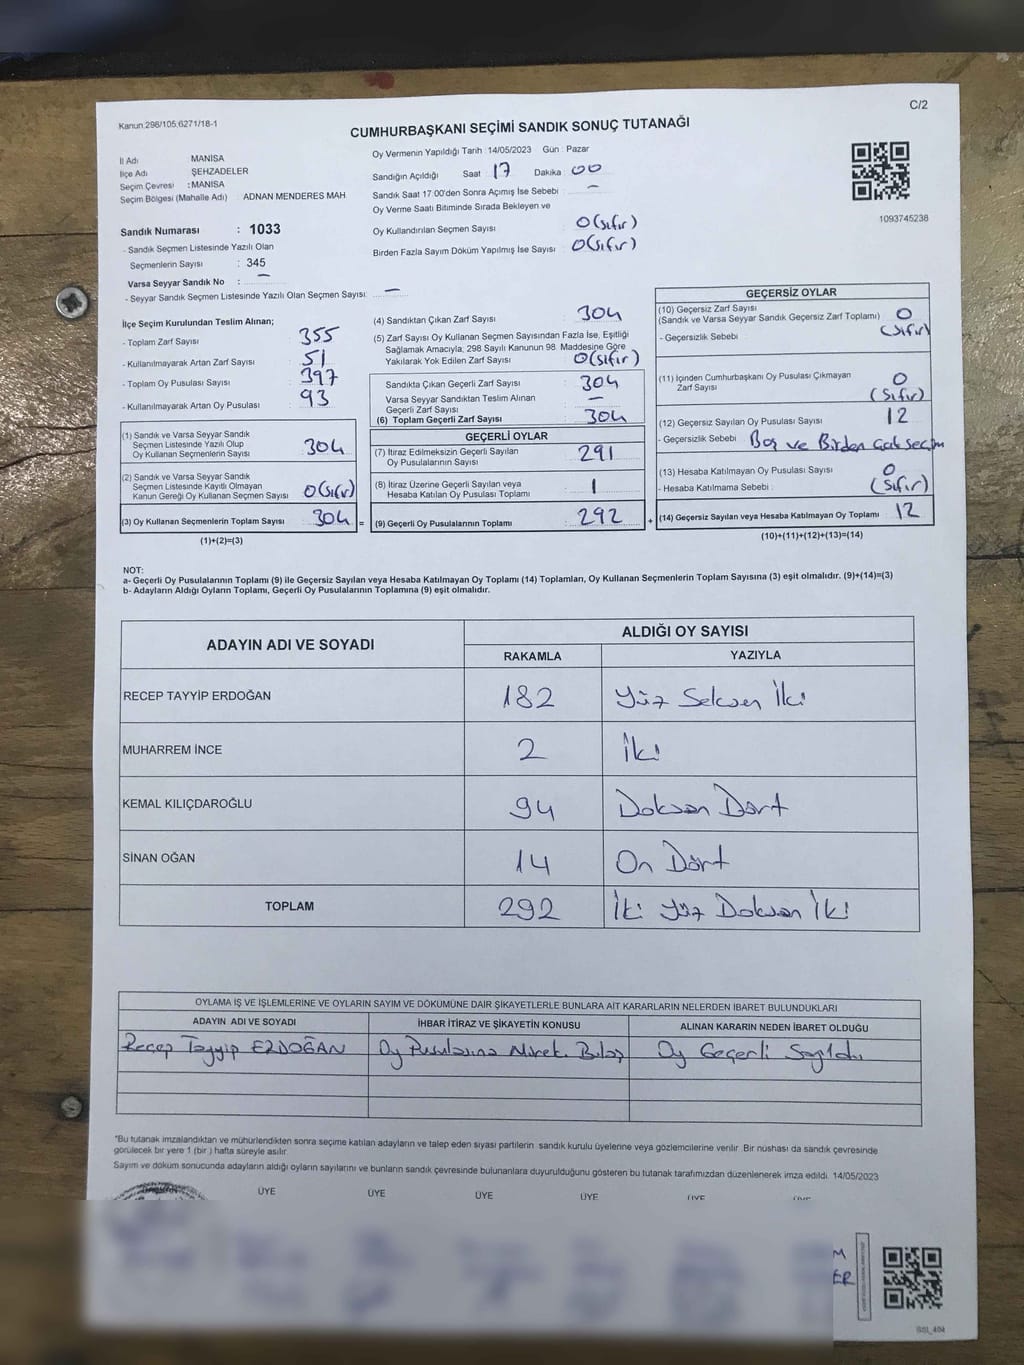 C/2
Kanun:298/105,6271/18-1
CUMHURBAŞKANI SEÇİMİ SANDIK SONUÇ TUTANAĞI
İl Adı : MANİSA
İlçe Adı ŞEHZADELER
Seçim Çevresi : MANİSA
Seçim Bölgesi (Mahalle Adı) ADNAN MENDERES MAH.
Sandık Numarası : 1033
- Sandık Seçmen Listesinde Yazılı Olan
Seçmenlerin Sayısı : 345
Varsa Seyyar Sandık No : —
- Seyyar Sandık Seçmen Listesinde Yazılı Olan Seçmen Sayısı: —
Oy Vermenin Yapıldığı Tarih : 14/05/2023 Gün : Pazar
Sandığın Açıldığı Saat 17 Dakika 00
Sandık Saat 17:00'den Sonra Açımış İse Sebebi : —
Oy Verme Saati Bitiminde Sırada Bekleyen ve
Oy Kullandırılan Seçmen Sayısı : 0 (sıfır)
Birden Fazla Sayım Döküm Yapılmış İse Sayısı : 0 (sıfır)
1093745238
İlçe Seçim Kurulundan Teslim Alınan;
- Toplam Zarf Sayısı : 355
- Kullanılmayarak Artan Zarf Sayısı : 51
- Toplam Oy Pusulası Sayısı : 397
- Kullanılmayarak Artan Oy Pusulası : 93
(1) Sandık ve Varsa Seyyar Sandık
Seçmen Listesinde Yazılı Olup
Oy Kullanan Seçmenlerin Sayısı : 304
(2) Sandık ve Varsa Seyyar Sandık
Seçmen Listesinde Kayıtlı Olmayan
Kanun Gereği Oy Kullanan Seçmen Sayısı : 0 (sıfır)
(3) Oy Kullanan Seçmenlerin Toplam Sayısı : 304 =
(1)+(2)=(3)
(4) Sandıktan Çıkan Zarf Sayısı : 304
(5) Zarf Sayısı Oy Kullanan Seçmen Sayısından Fazla İse, Eşitliği
Sağlamak Amacıyla, 298 Sayılı Kanunun 98. Maddesine Göre
Yakılarak Yok Edilen Zarf Sayısı : 0 (sıfır)
Sandıkta Çıkan Geçerli Zarf Sayısı : 304
Varsa Seyyar Sandıktan Teslim Alınan
Geçerli Zarf Sayısı : —
(6) Toplam Geçerli Zarf Sayısı : 304
GEÇERLİ OYLAR
(7) İtiraz Edilmeksizin Geçerli Sayılan
Oy Pusulalarının Sayısı : 291
(8) İtiraz Üzerine Geçerli Sayılan veya
Hesaba Katılan Oy Pusulası Toplamı : 1
(9) Geçerli Oy Pusulalarının Toplamı : 292 +
GEÇERSİZ OYLAR
(10) Geçersiz Zarf Sayısı
(Sandık ve Varsa Seyyar Sandık Geçersiz Zarf Toplamı) : 0
- Geçersizlik Sebebi : (sıfır)
(11) İçinden Cumhurbaşkanı Oy Pusulası Çıkmayan
Zarf Sayısı : 0 (sıfır)
(12) Geçersiz Sayılan Oy Pusulası Sayısı : 12
- Geçersizlik Sebebi : Boş ve Birden çok seçim
(13) Hesaba Katılmayan Oy Pusulası Sayısı : 0
- Hesaba Katılmama Sebebi : (sıfır)
(14) Geçersiz Sayılan veya Hesaba Katılmayan Oy Toplamı : 12
(10)+(11)+(12)+(13)=(14)
NOT:
a- Geçerli Oy Pusulalarının Toplamı (9) ile Geçersiz Sayılan veya Hesaba Katılmayan Oy Toplamı (14) Toplamları, Oy Kullanan Seçmenlerin Toplam Sayısına (3) eşit olmalıdır. (9)+(14)=(3)
b- Adayların Aldığı Oyların Toplamı, Geçerli Oy Pusulalarının Toplamına (9) eşit olmalıdır.
ADAYIN ADI VE SOYADI ALDIĞI OY SAYISI
RAKAMLA YAZIYLA
RECEP TAYYİP ERDOĞAN 182 Yüz Seksen İki
MUHARREM İNCE 2 İki
KEMAL KILIÇDAROĞLU 94 Doksan Dört
SİNAN OĞAN 14 On Dört
TOPLAM 292 İki Yüz Doksan İki
OYLAMA İŞ VE İŞLEMLERİNE VE OYLARIN SAYIM VE DÖKÜMÜNE DAİR ŞİKAYETLERLE BUNLARA AİT KARARLARIN NELERDEN İBARET BULUNDUKLARI
ADAYIN ADI VE SOYADI İHBAR İTİRAZ VE ŞİKAYETİN KONUSU ALINAN KARARIN NEDEN İBARET OLDUĞU
Recep Tayyip ERDOĞAN Oy Pusulasına Mürek. Bulaş Oy Geçerli Sayıldı
*Bu tutanak imzalandıktan ve mühürlendikten sonra seçime katılan adayların ve talep eden siyasi partilerin sandık kurulu üyelerine veya gözlemcilerine verilir. Bir nüshası da sandık çevresinde
görülecek bir yere 1 (bir ) hafta süreyle asılır.
Sayım ve döküm sonucunda adayların aldığı oyların sayılarını ve bunların sandık çevresinde bulunanlara duyurulduğunu gösteren bu tutanak tarafımızdan düzenlenerek imza edildi. 14/05/2023
ÜYE ÜYE ÜYE ÜYE ÜYE ÜYE